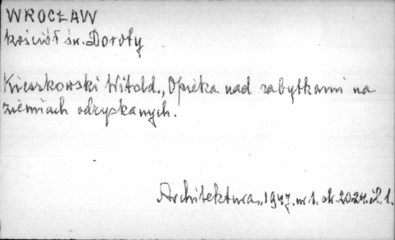 WROCŁAW
kościół św. Doroty
Kieszkowski Witold., Opieka nad zabytkami na
ziemiach odzyskanych.
Architektura., 1947. nr 1. str. 20-24. il. 1.